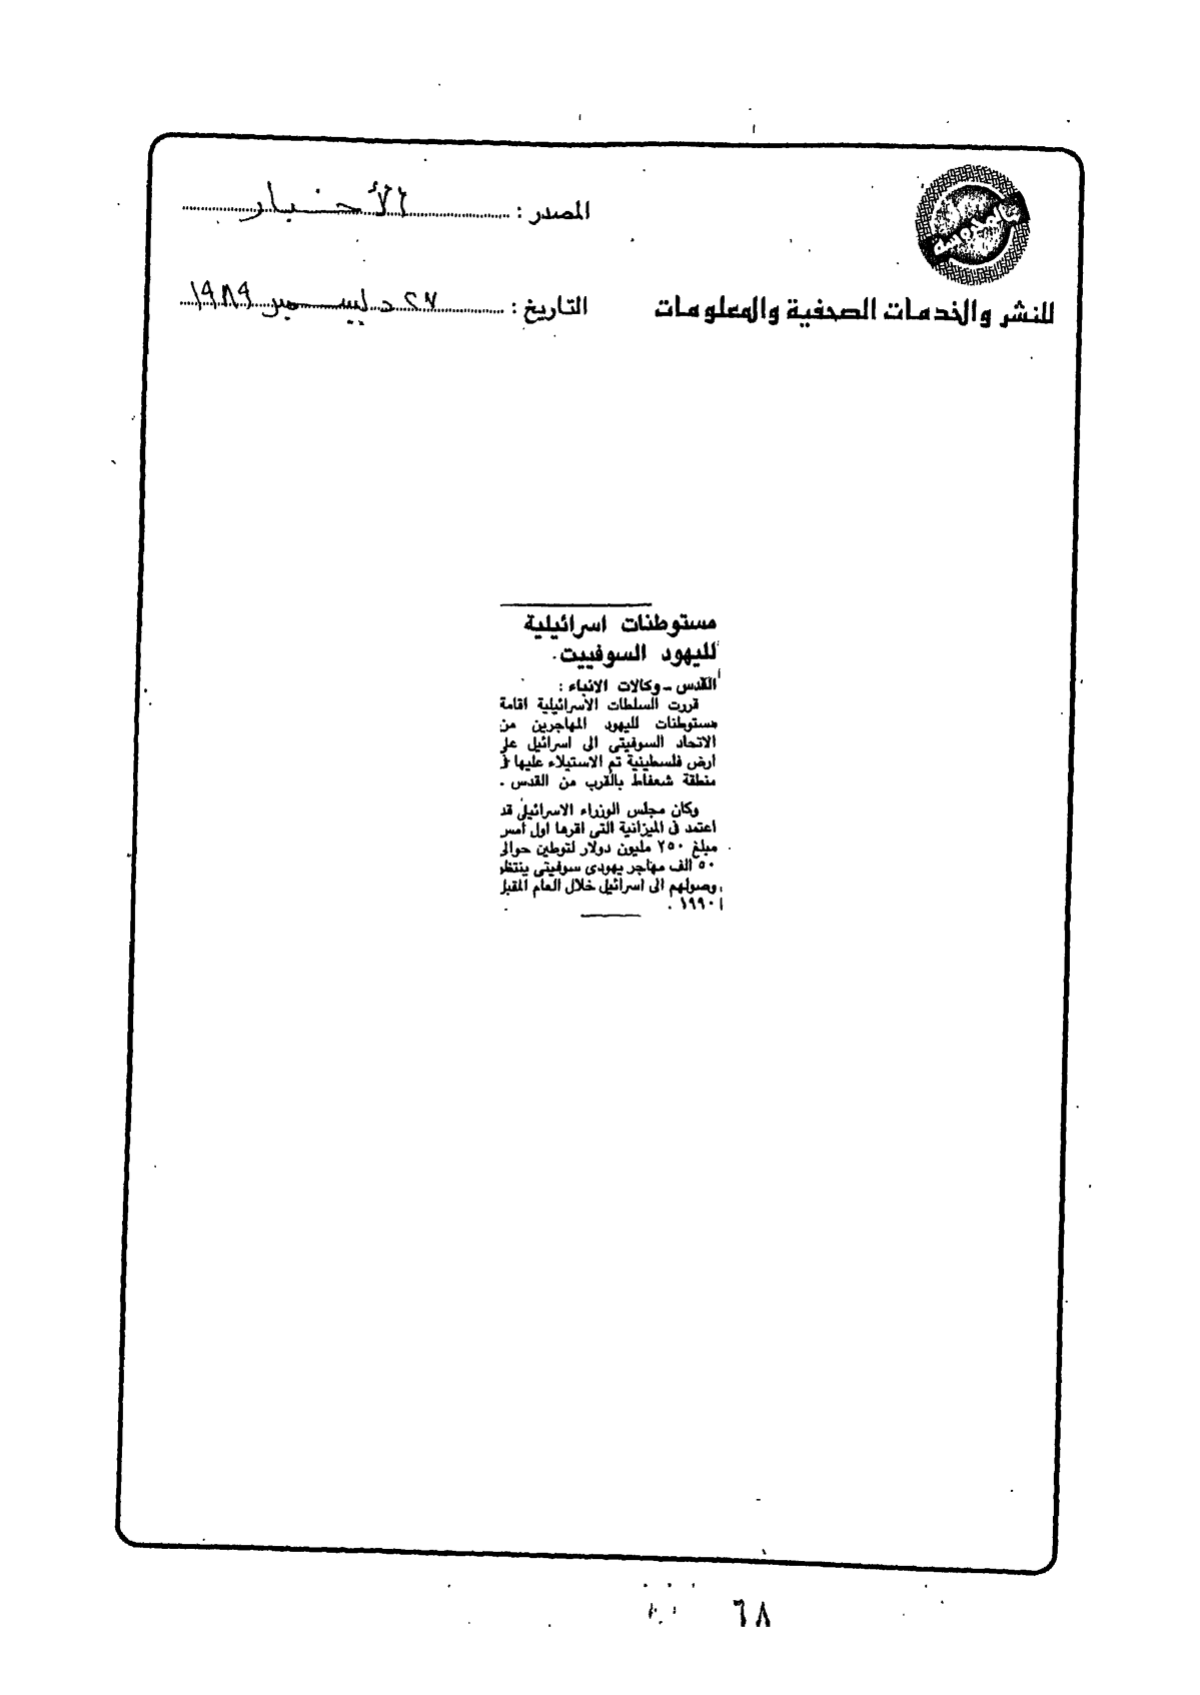 المصدر : الأخبار
للنشر والخدمات الصحفية والمعلومات
التاريخ : ٢٧ ديسمبر ١٩٨٩
مستوطنات اسرائيلية
لليهود السوفييت
القدس - وكالات الانباء :
قررت السلطات الاسرائيلية اقامة
مستوطنات لليهود المهاجرين من
الاتحاد السوفيتى الى اسرائيل على
ارض فلسطينية تم الاستيلاء عليها فى
منطقة شعفاط بالقرب من القدس .
وكان مجلس الوزراء الاسرائيلى قد
اعتمد فى الميزانية التى اقرها اول أمس
مبلغ ٢٥٠ مليون دولار لتوطين حوالى
٥٠ الف مهاجر يهودى سوفيتى ينتظر
وصولهم الى اسرائيل خلال العام المقبل
١٩٩٠ .
٦٨